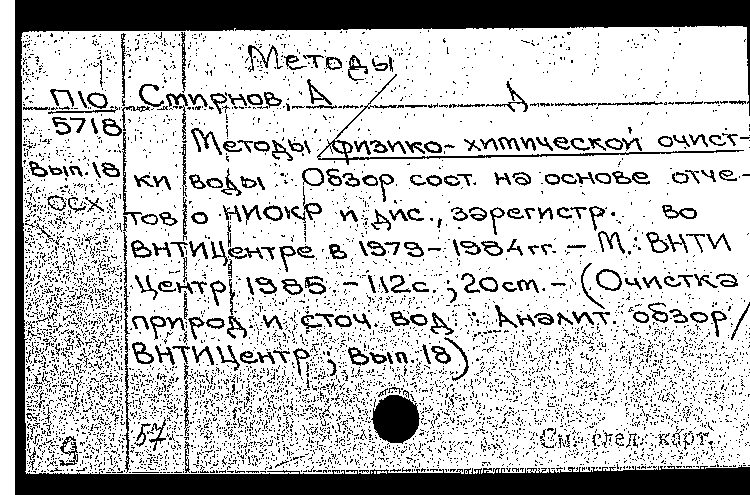 Методы
П10 Смирнов, А Д
5718
Методы физико-химической очист-
Вып.18 ки воды : Обзор сост. на основе отче-
ОСХ тов о НИОКР и дис., зарегистр. во
ВНТИЦентре в 1979-1984 гг. – М.: ВНТИ
Центр, 1985 – 112с. ; 20см. – (Очистка
природ и сточ. вод : Аналит. обзор /
ВНТИЦентр ; Вып. 18)
9 57 См. след. карт.